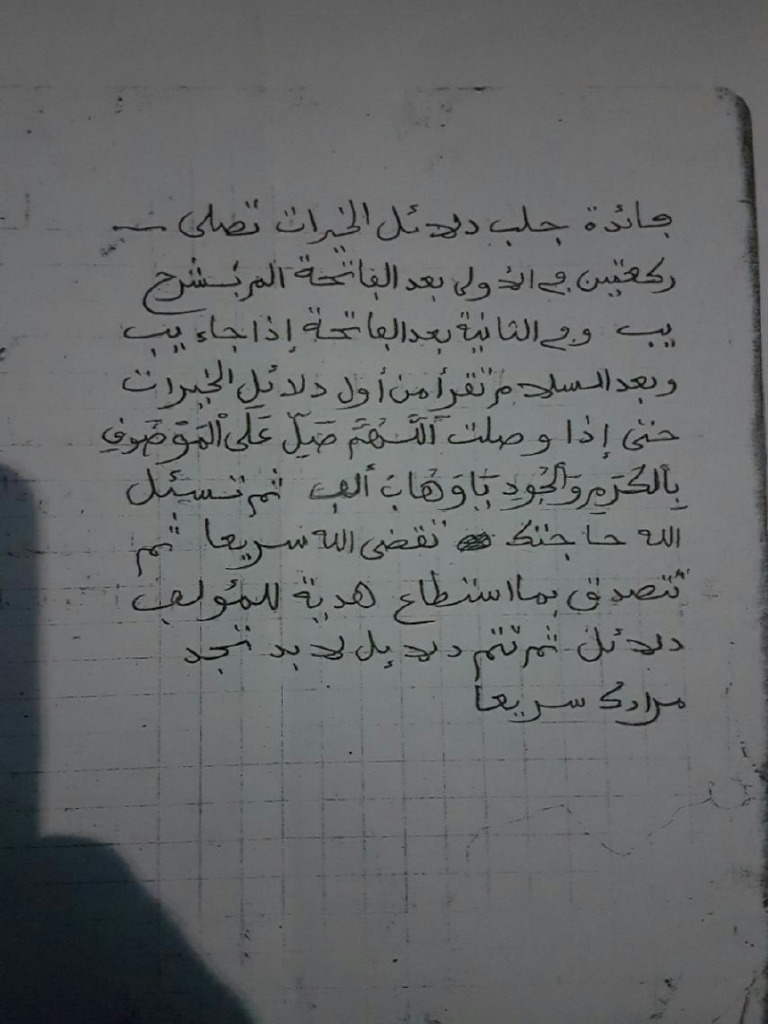 فائدة جلب دلائل الخيرات تصلى
ركعتين في الأولى بعد الفاتحة الم نشرح
يب وفي الثانية بعد الفاتحة إذا جاء يب
وبعد السلام تقرأ من أول دلائل الخيرات
حتى إذا وصلت اَللَّهُمَّ صَلِّ عَلَى الْمَوْصُوفِ
بِالْكَرَمِ وَالْجُودِ يَا وَهَّابُ ألف ثم تسئل
الله حاجتك تقضى الله سريعا ثم
تتصدق بما استطاع هدية للمؤلف
دلائل ثم تتم دلايل لابد تجد
مرادك سريعا